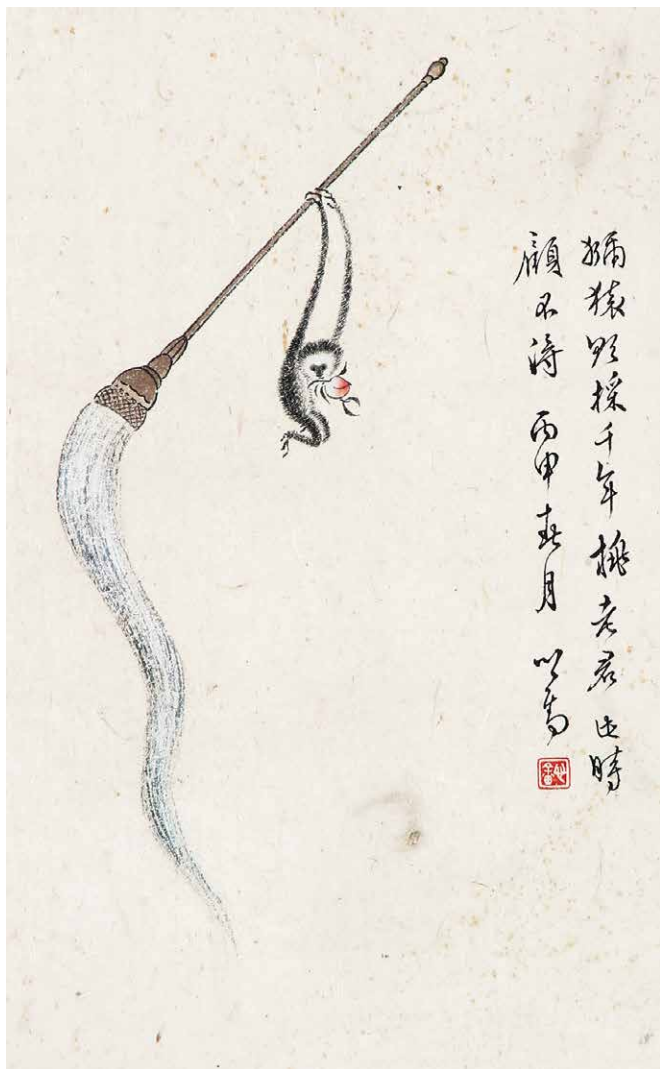 獼猿採千年桃老君此時
顧不得 丙申春月 心畬